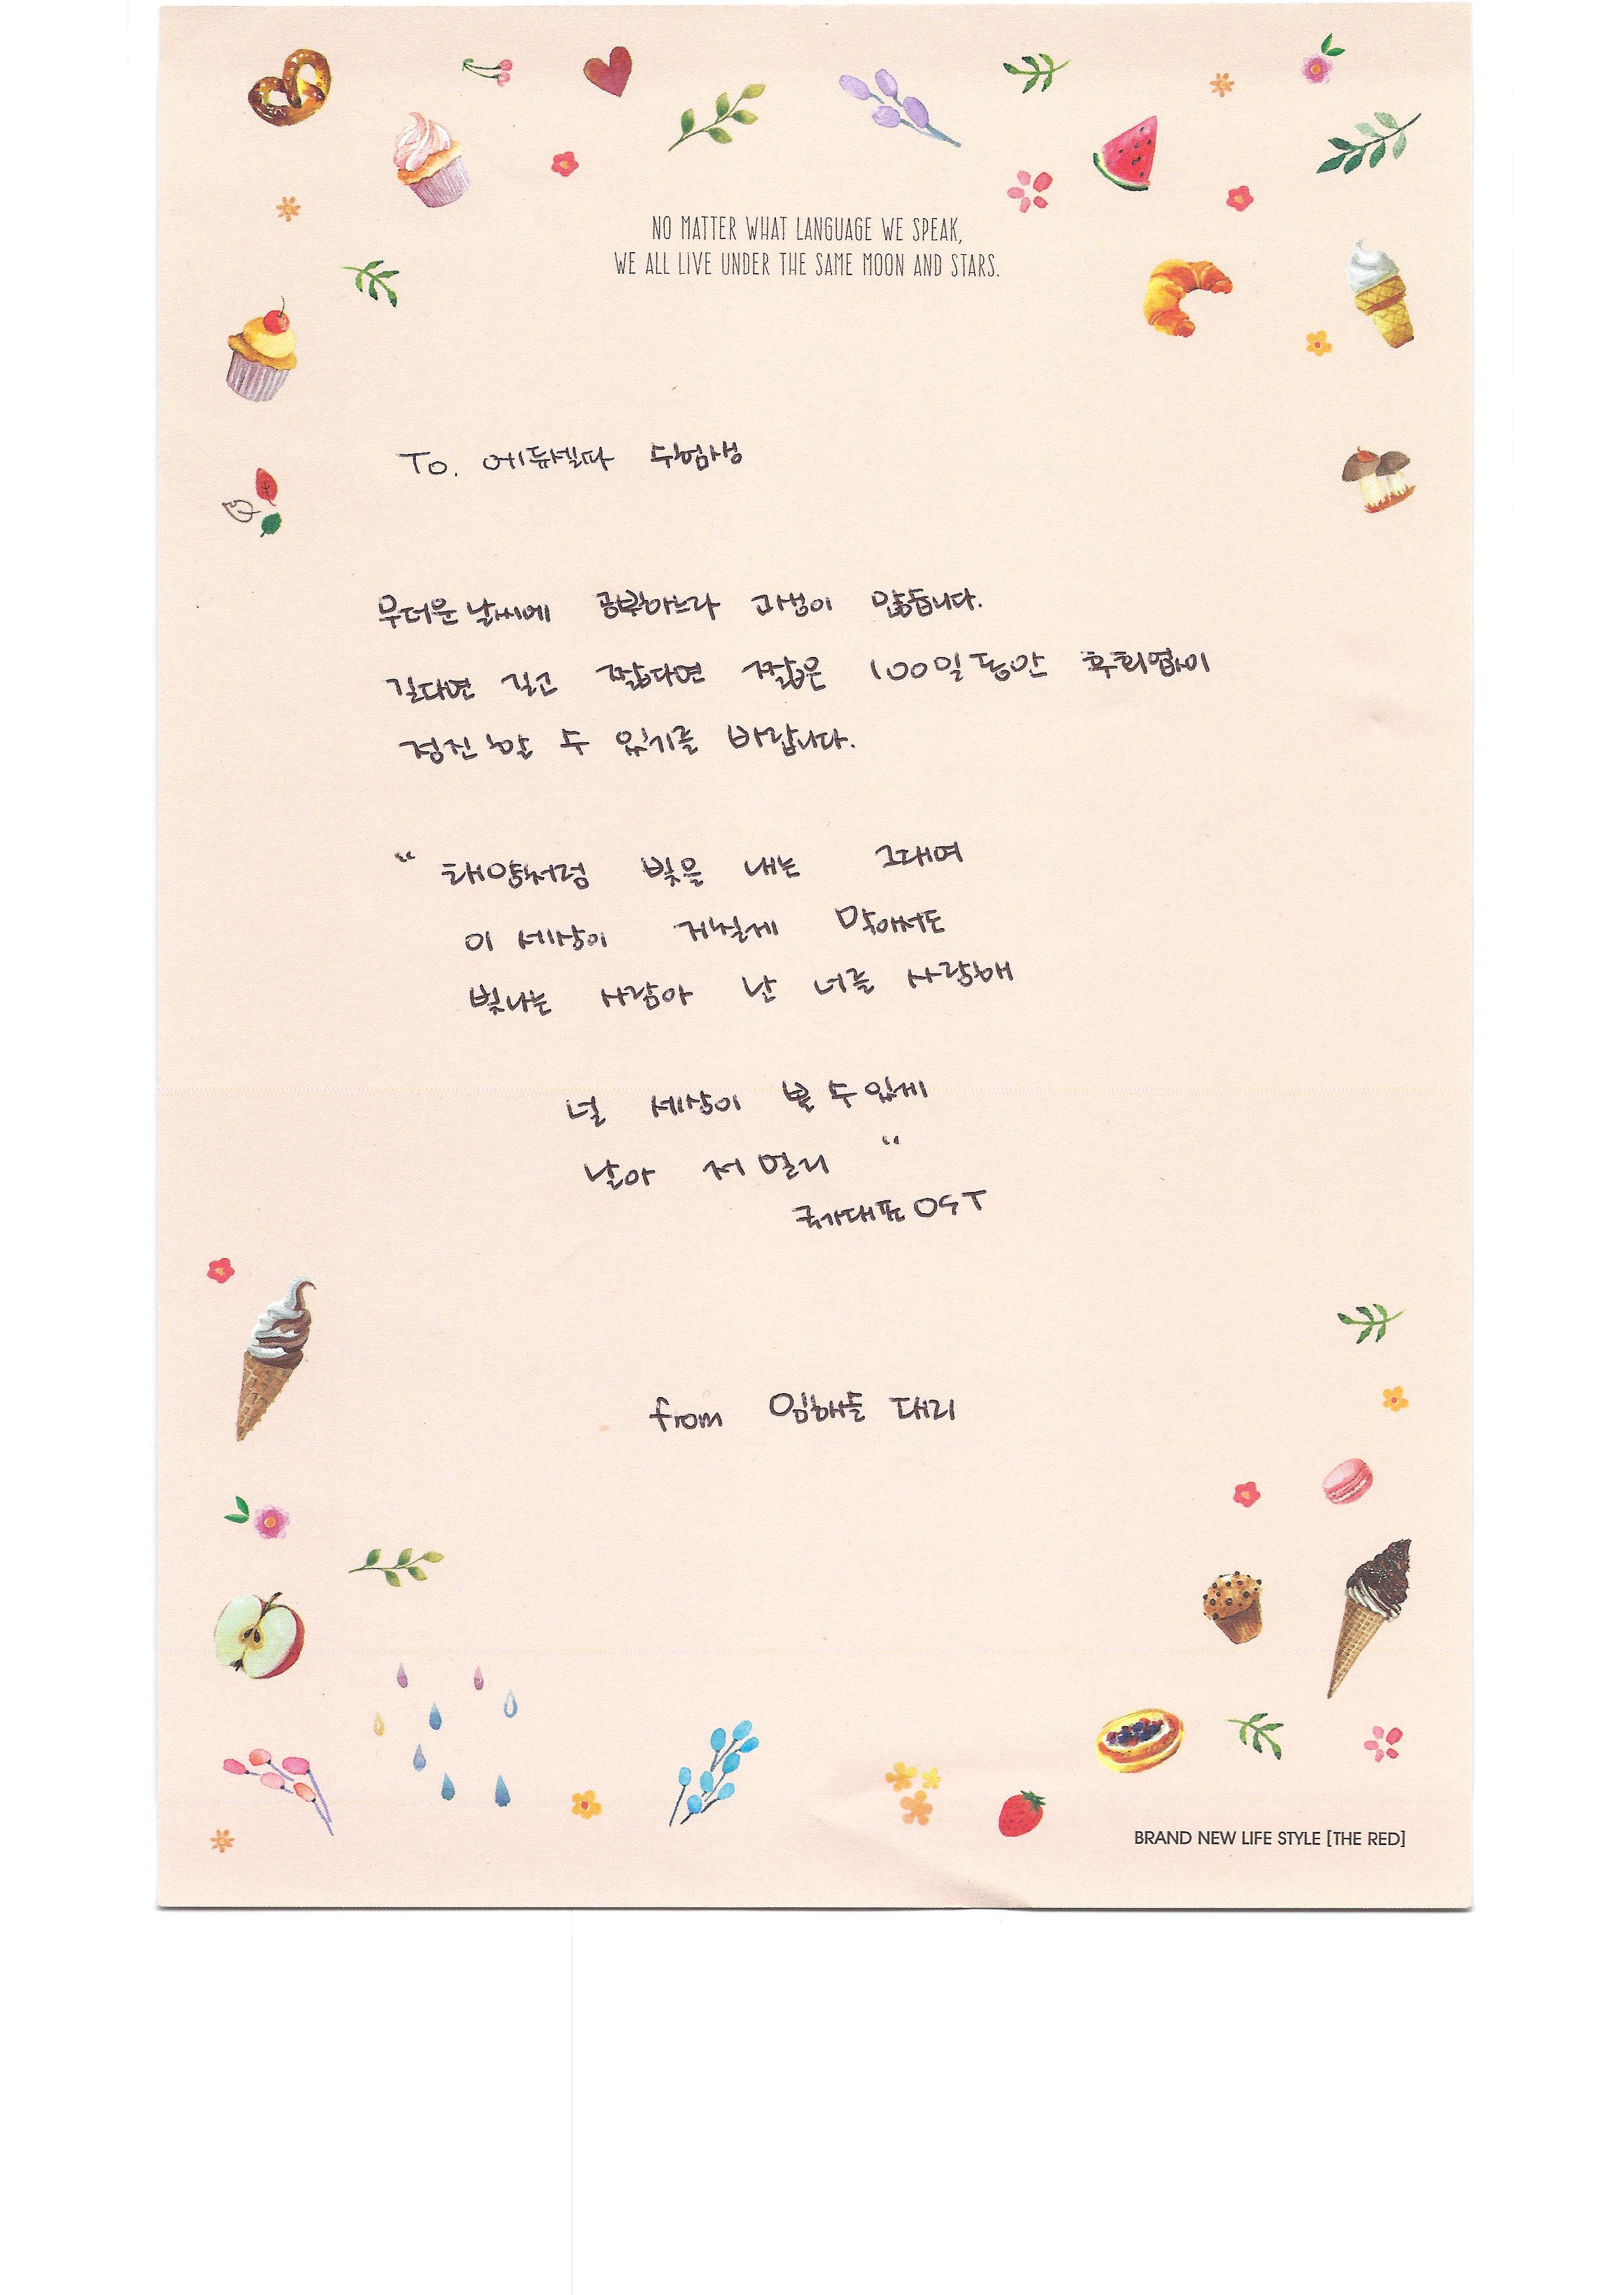 NO MATTER WHAT LANGUAGE WE SPEAK,
WE ALL LIVE UNDER THE SAME MOON AND STARS.
To. 에듀셀파 수험생
무더운 날씨에 공부하느라 고생이 많습니다.
길다면 길고 짧다면 짧은 100일 동안 후회없이
정진할 수 있기를 바랍니다.
“ 태양처럼 빛을 내는 그대여
이 세상이 거칠게 막아서도
빛나는 사람아 난 너를 사랑해
널 세상이 볼 수 있게
날아 저 멀리 “
국가대표 OST
from 임해솔 대리
BRAND NEW LIFE STYLE [THE RED]